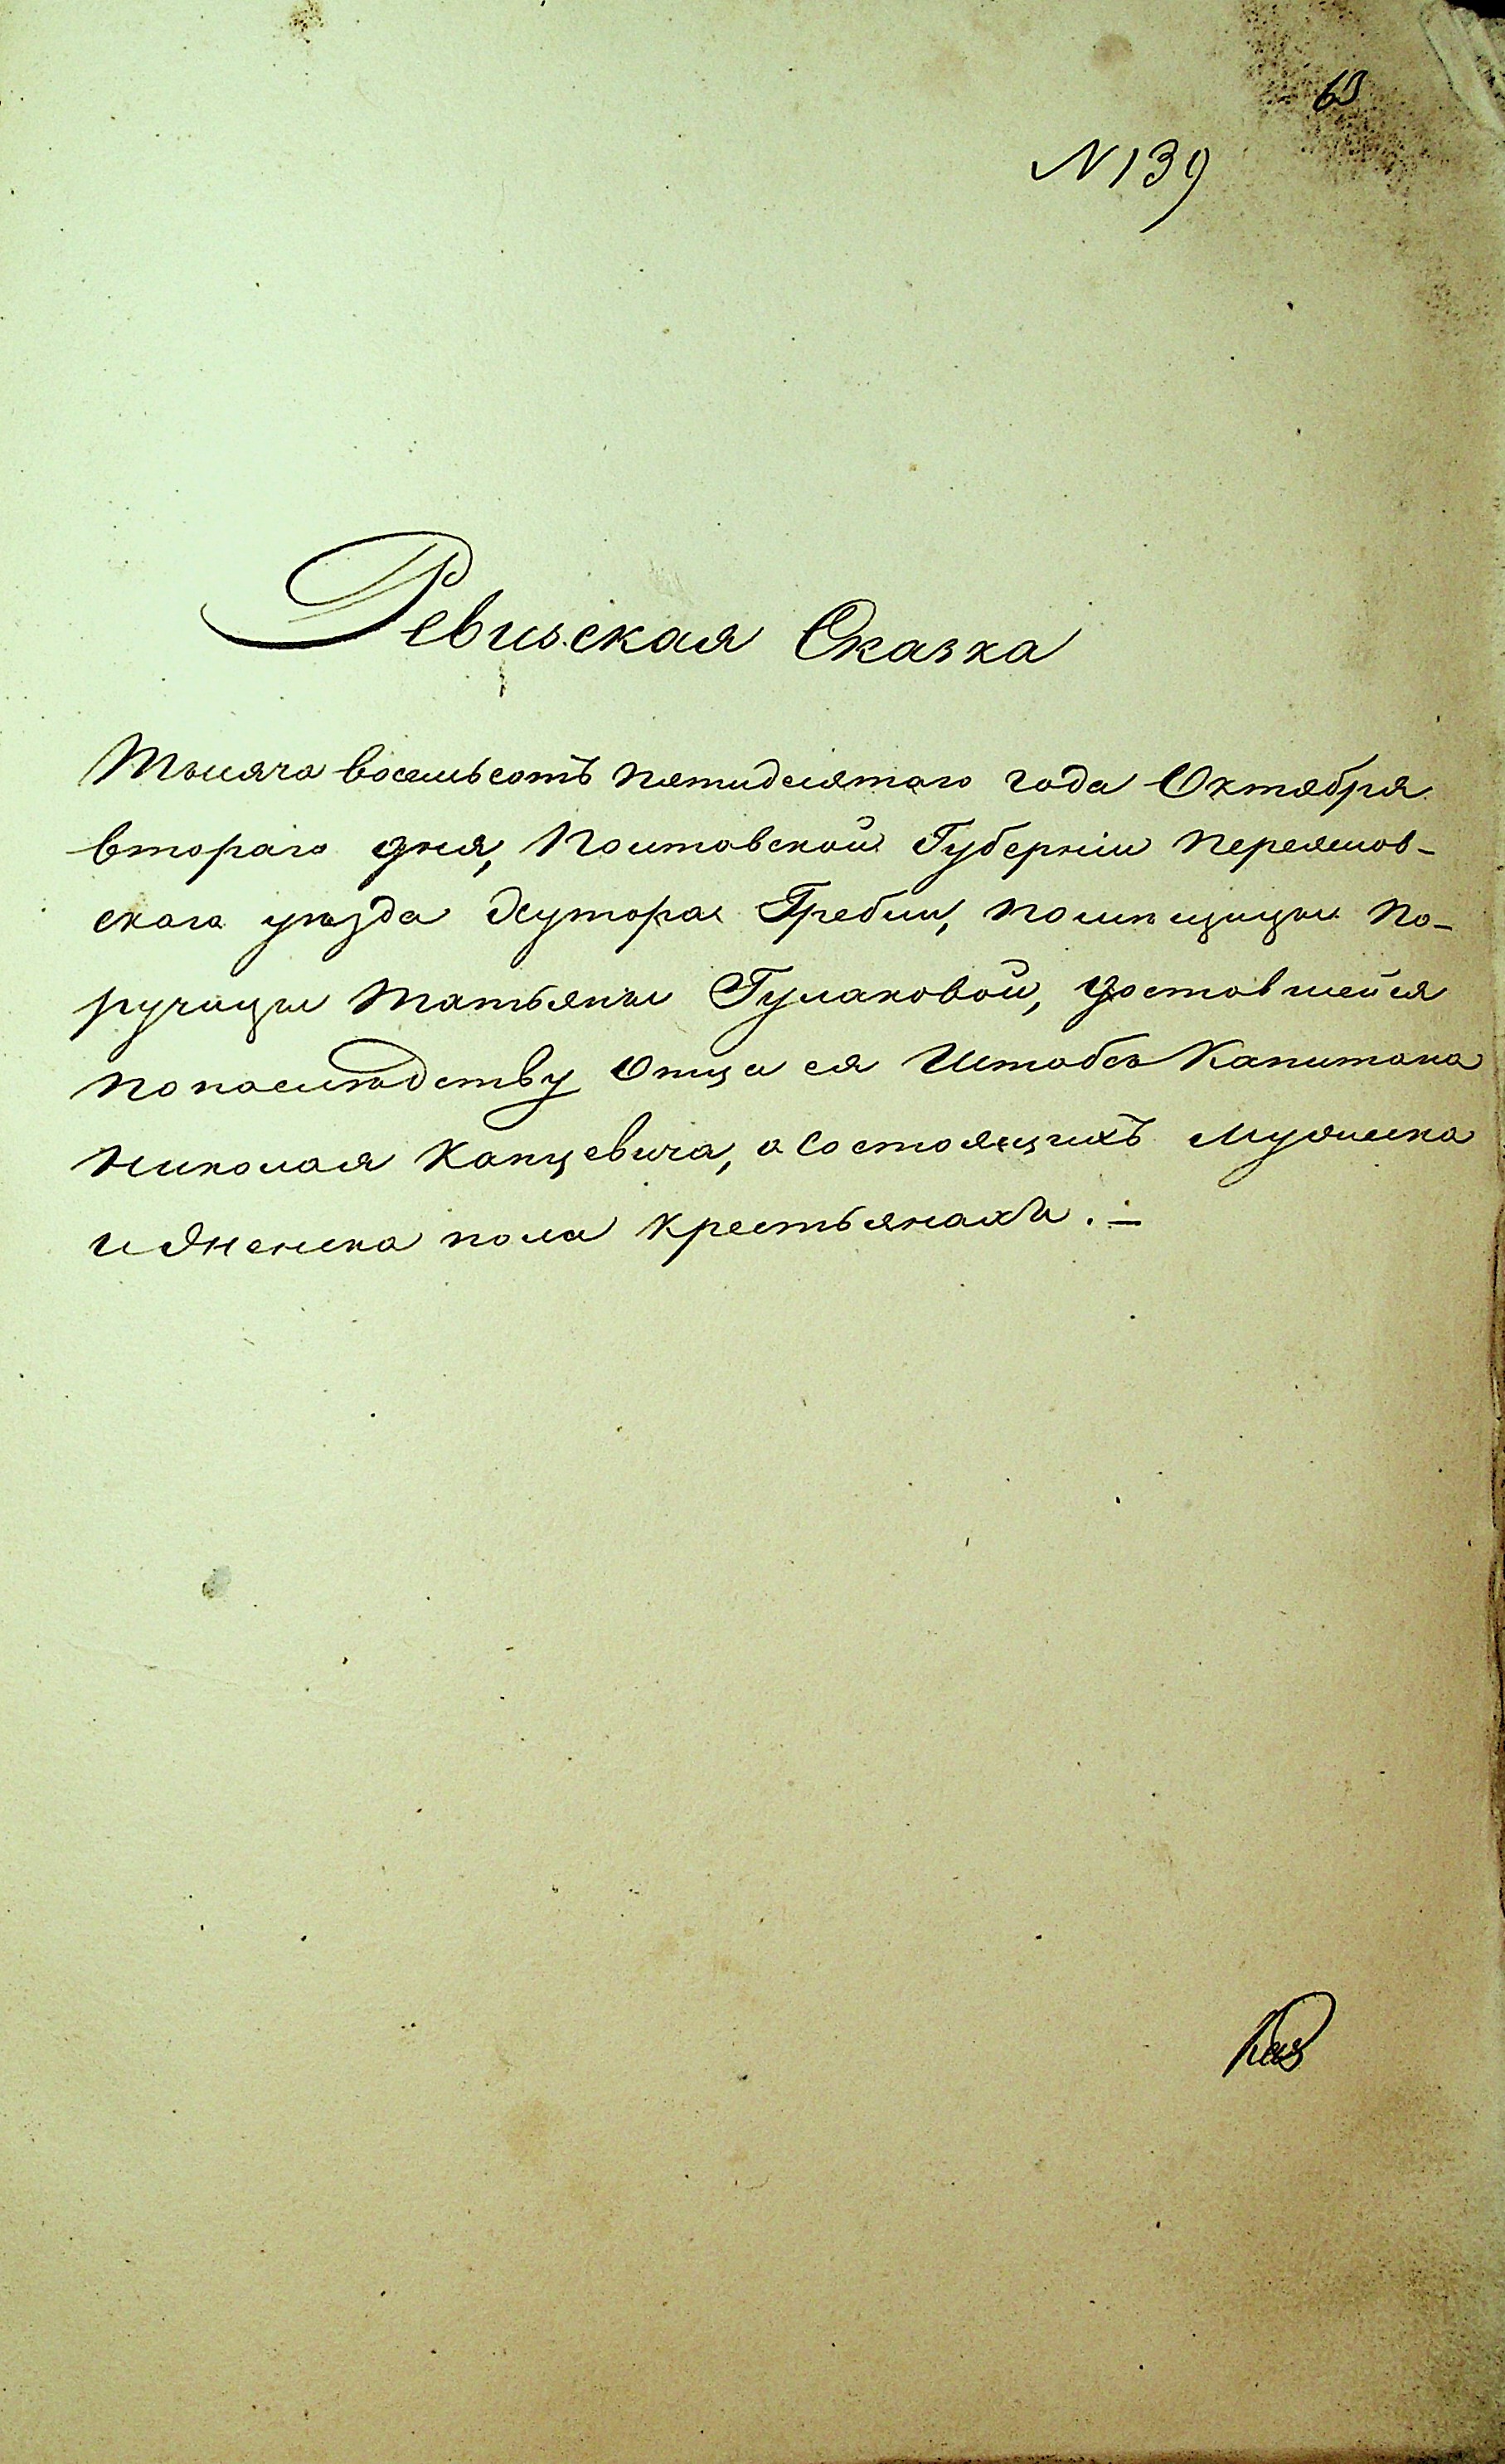 63
N 139
Ревизская Сказка
Тысяча восемьсотъ пятидесятаго года Октября
втораго дня, Полтавской Губерніи Переяслов-
скаго уѣзда Хутора Гребли, помѣщицы По-
ручицы Татьяны Гулаковой, доставшейся
по наслѣдству отца ея Штабсъ Капитана
Николая Капцевича, о состоящихъ мужеска
и женска пола крестьянахъ. –